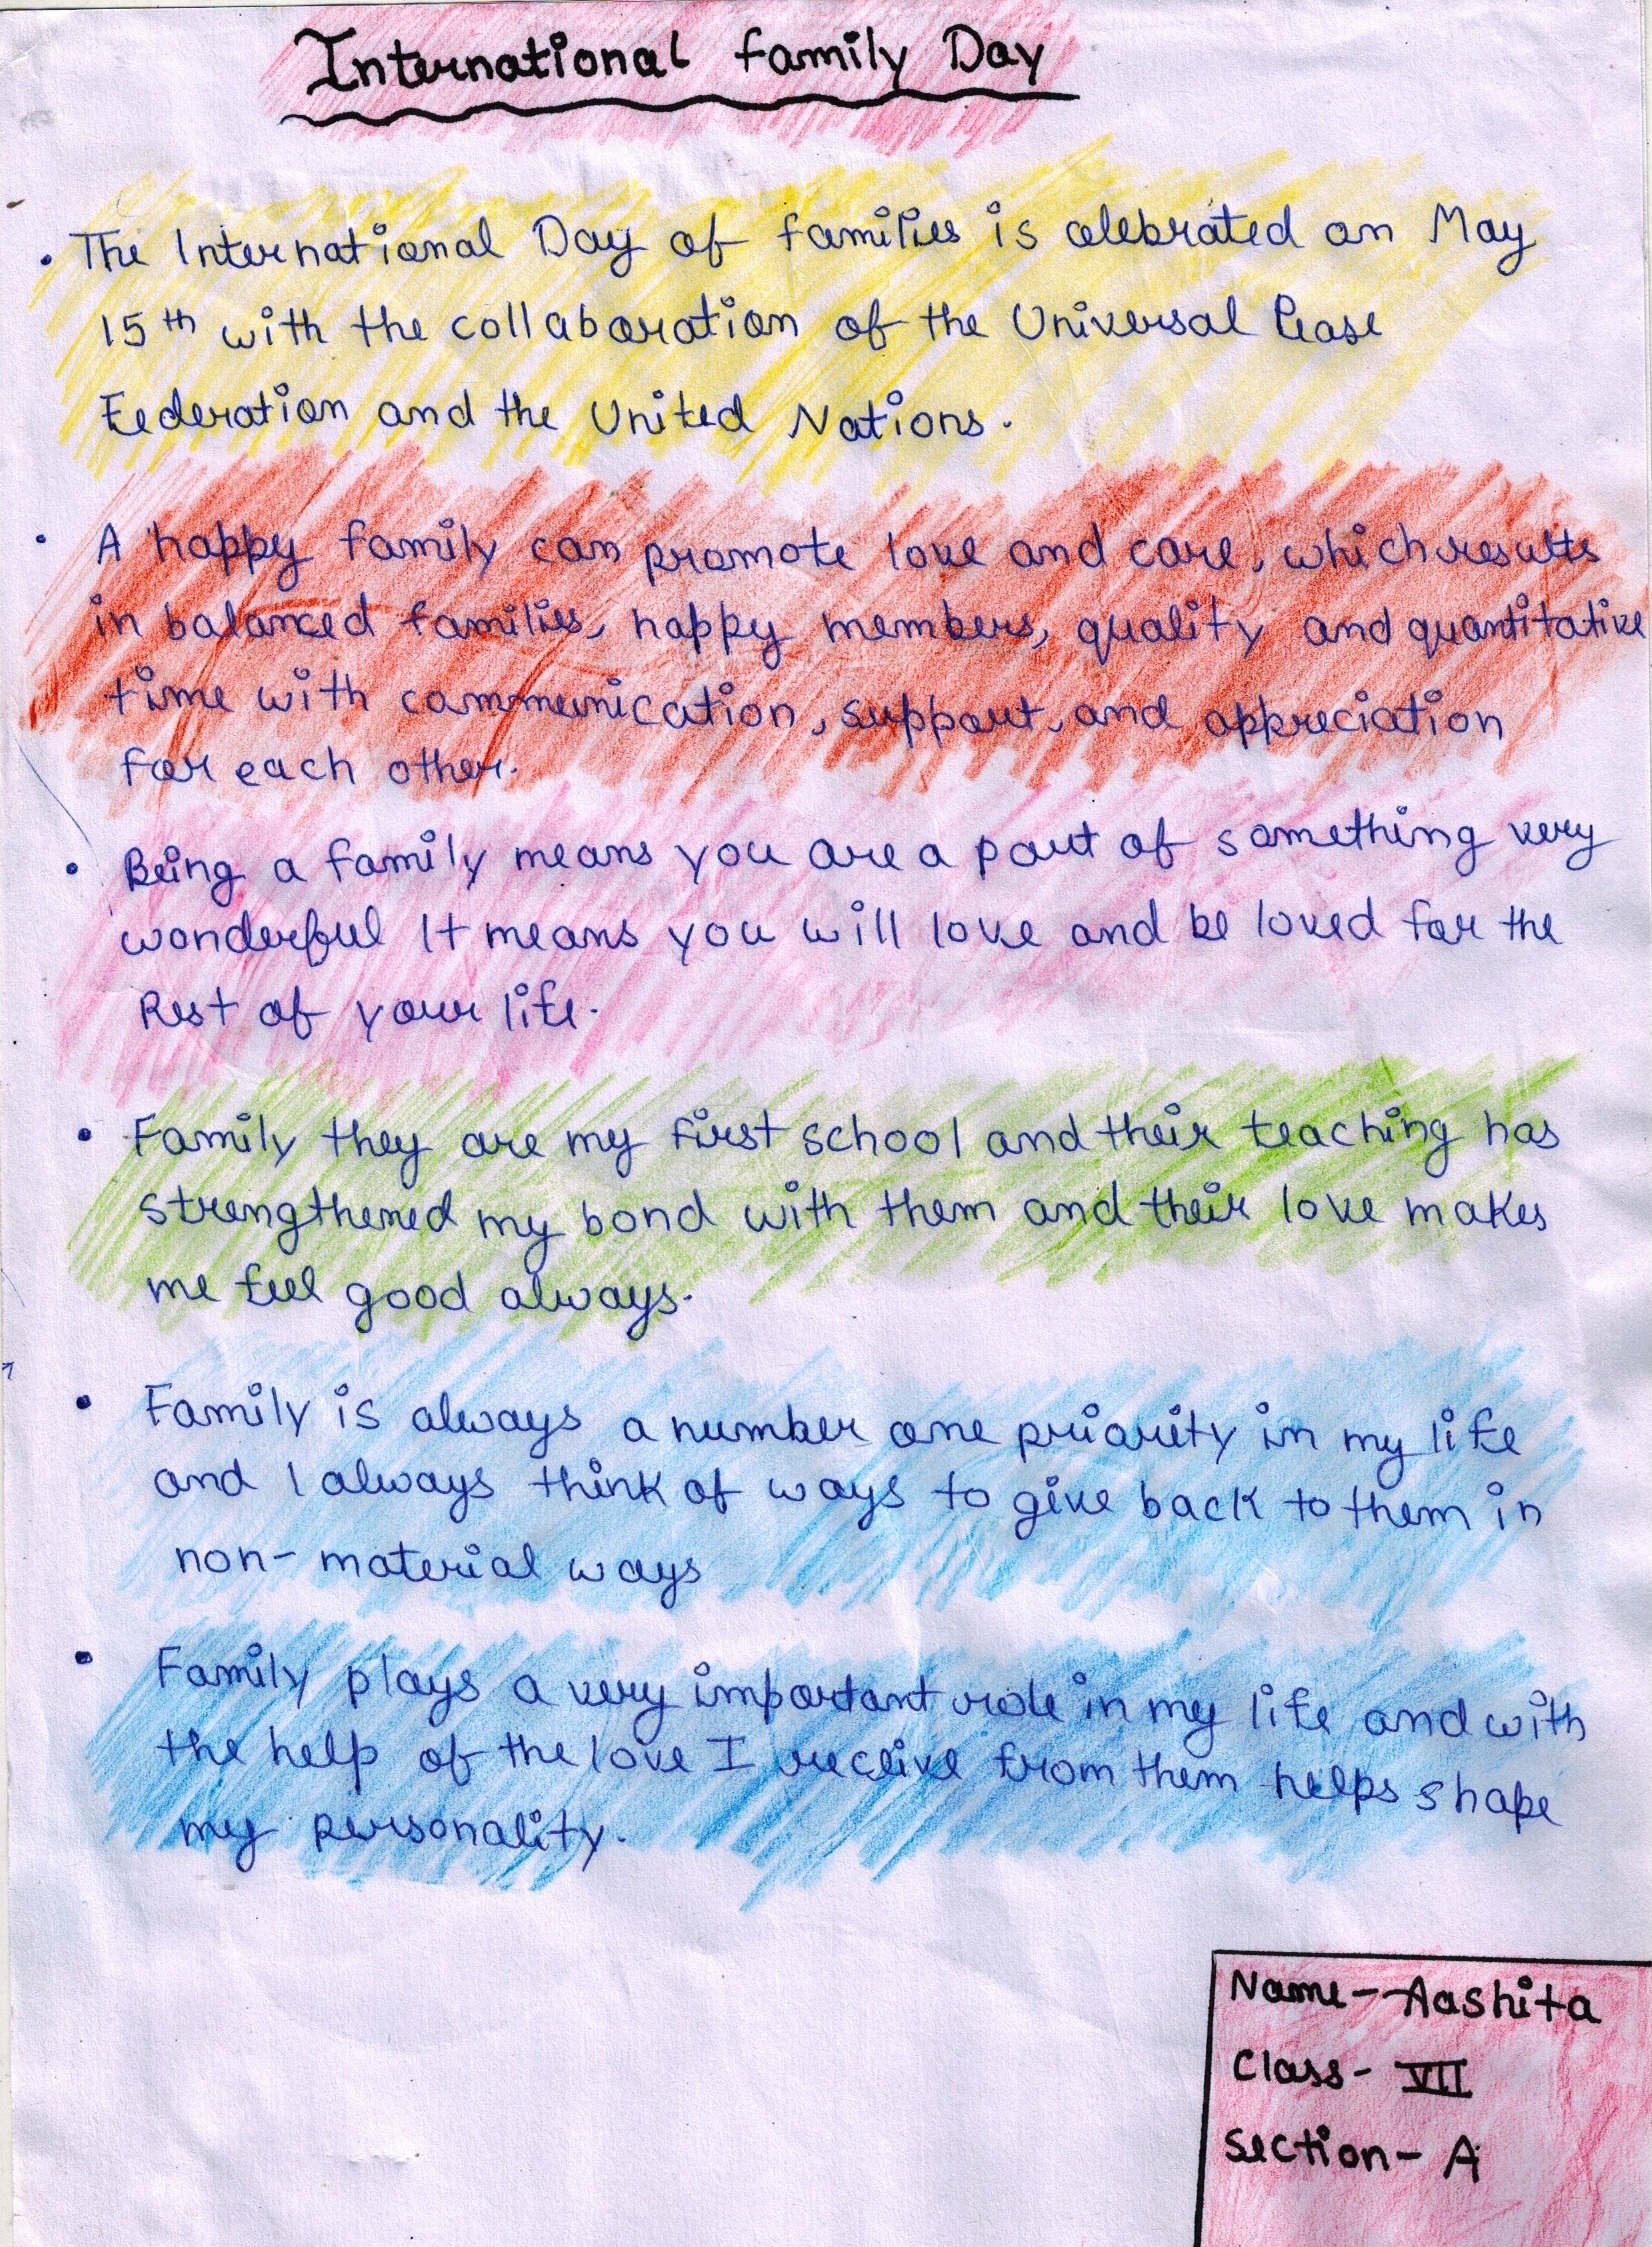 International Family Day
• The International Day of Families is celebrated on May
15th with the collaboration of the Universal Pease
Federation and the United Nations.
• A happy family can promote love and care, which results
in balanced families, happy members, quality and quantitative
time with communication, support, and appreciation
for each other.
• Being a family means you are a part of something very
wonderful It means you will love and be loved for the
Rest of your life.
• Family they are my first school and their teaching has
strengthened my bond with them and their love makes
me feel good always.
• Family is always a number one priority in my life
and I always think of ways to give back to them in
non-material ways
• Family plays a very important role in my life and with
the help of the love I receive from them helps shape
my personality.
Name- Aashita
Class- VII
Section- A